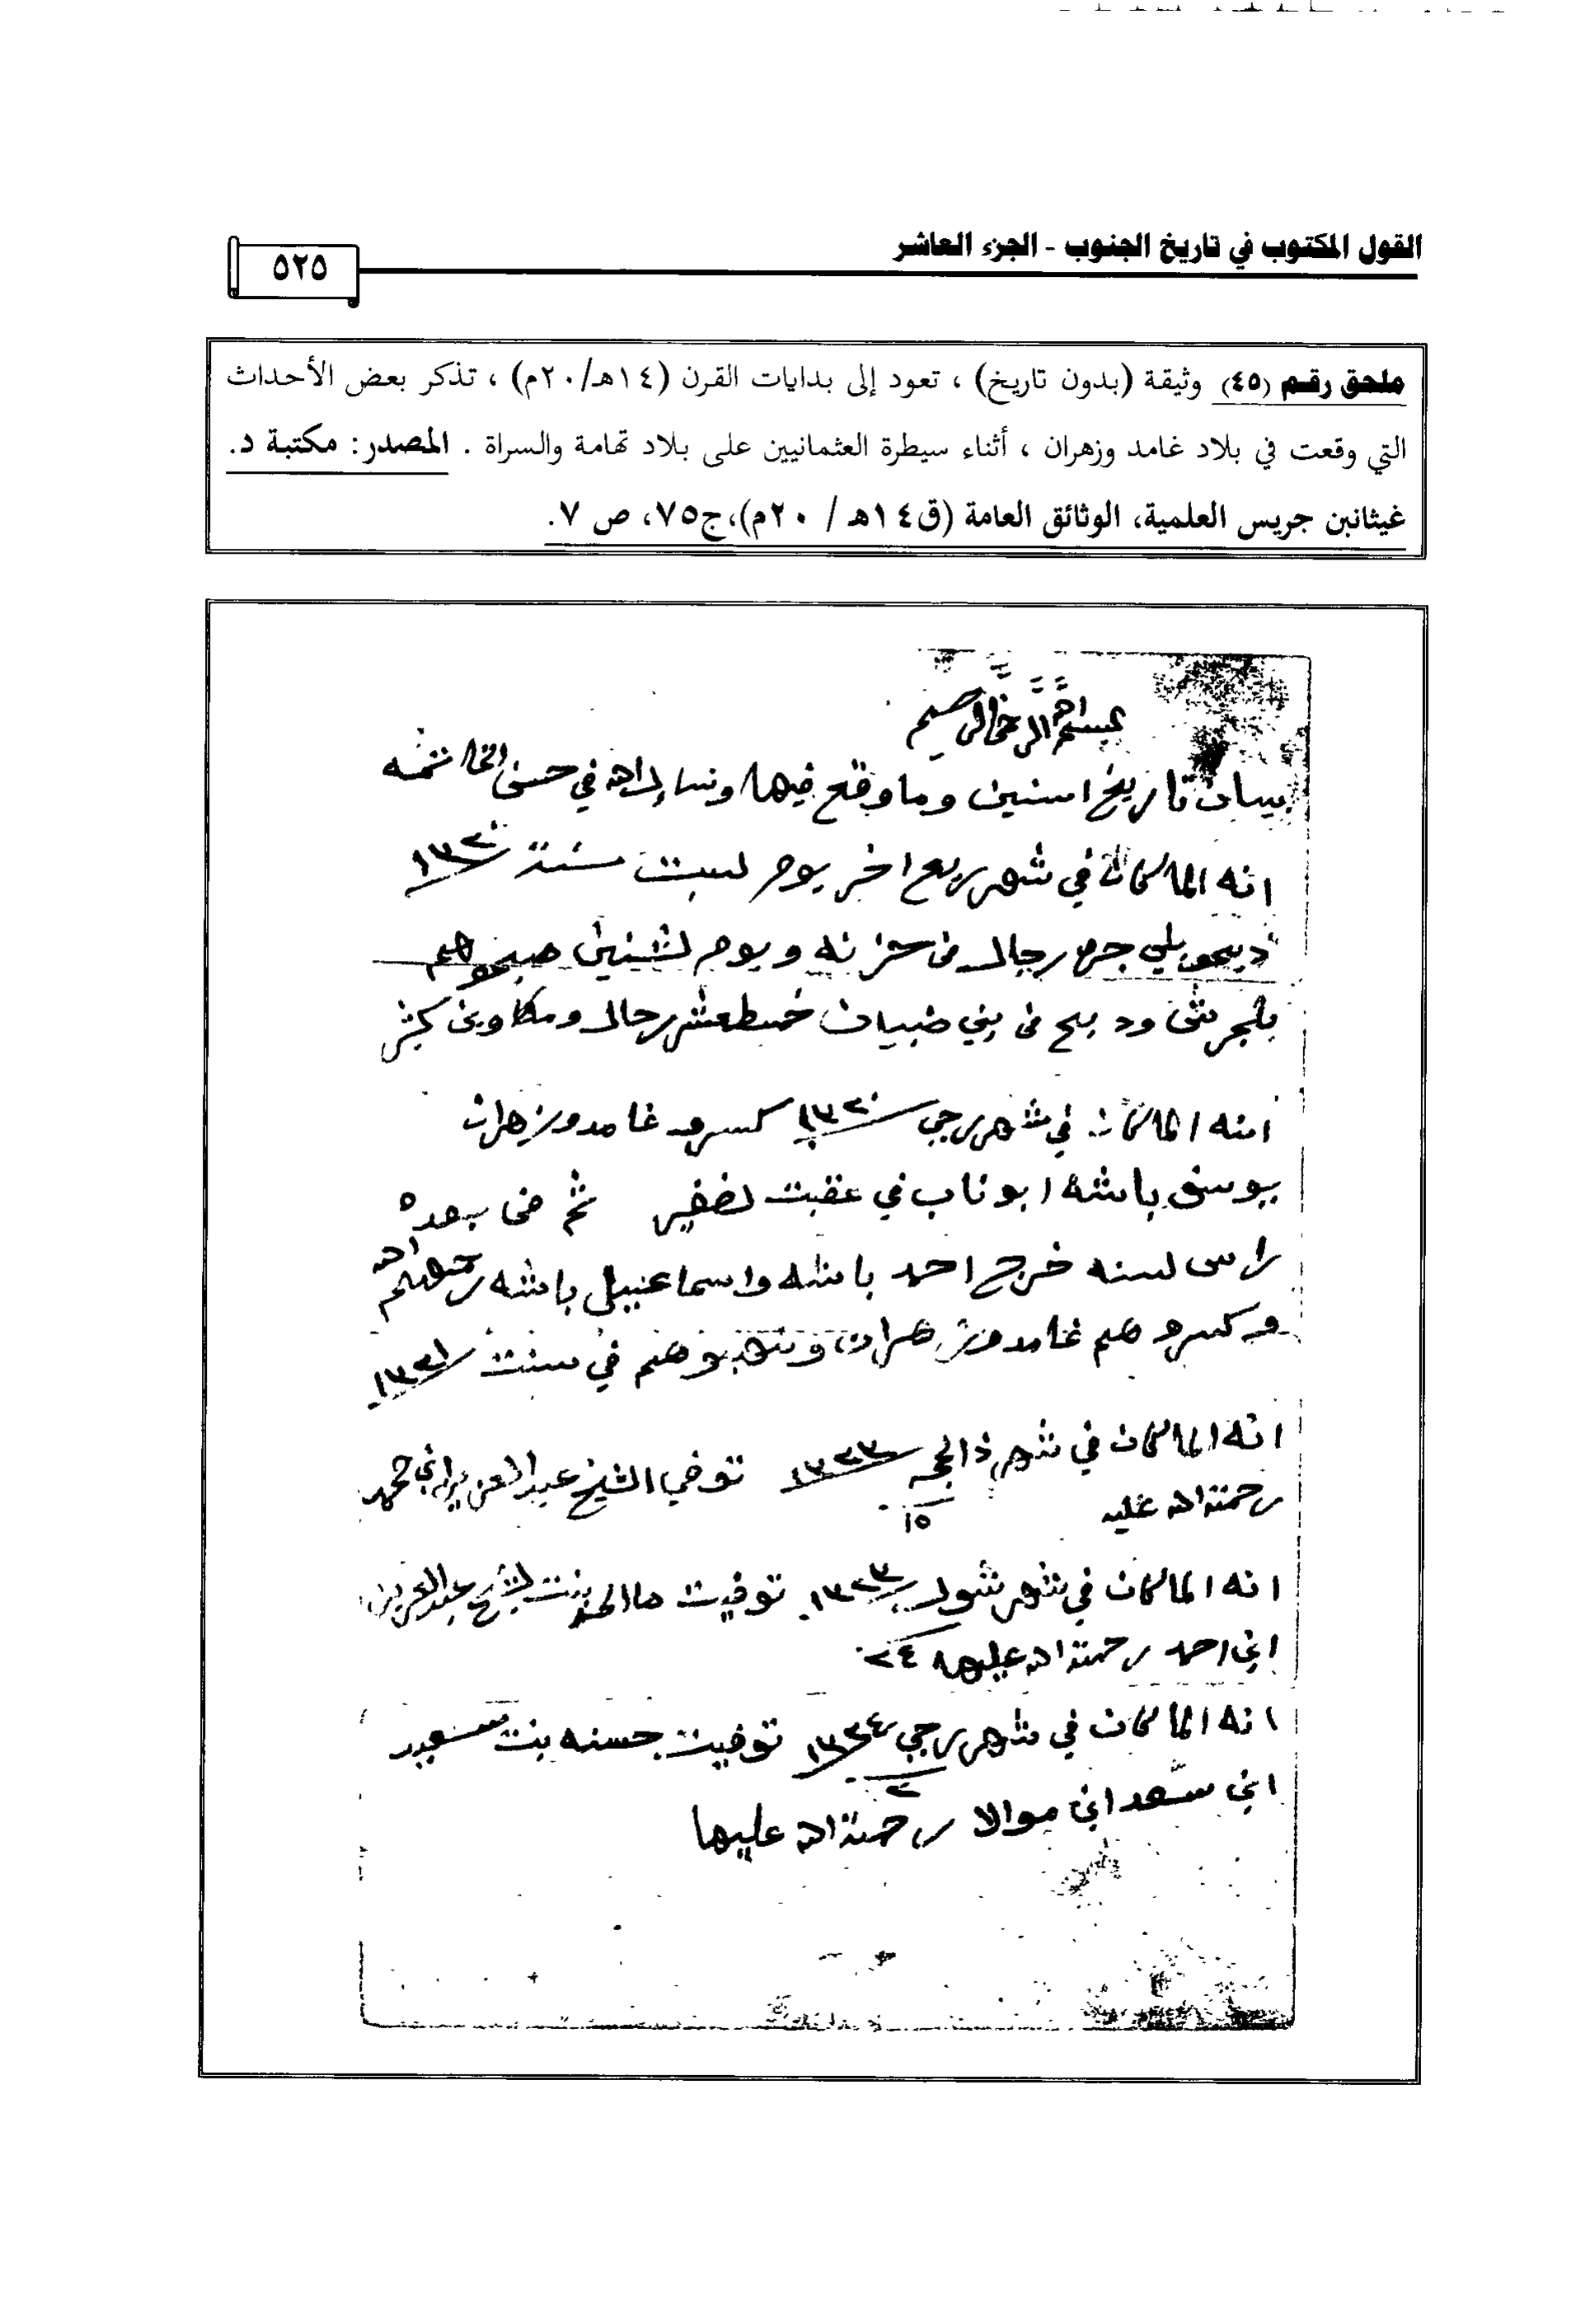 القول المكتوب في تاريخ الجنوب - الجزء العاشر
٥٢٥
ملحق رقم (٤٥) وثيقة (بدون تاريخ) ، تعود إلى بدايات القرن (١٤هـ/٢٠م) ، تذكر بعض الأحداث
التي وقعت في بلاد غامد وزهران ، أثناء سيطرة العثمانيين على بلاد تهامة والسراة . المصدر: مكتبة د.
غيثانبن جريس العلمية، الوثائق العامة (ق١٤هـ / ٢٠م)،ج٧٥، ص ٧.
بسم الله الرحمن الرحيم
بيان تاريخ اسنين وما وقع فيها ونسا إل الله في حسن الخاتمه
انه الما كان في شهر ربيع اخر يوم لسبت سنة ١٣٢٠
رجال من ويوم لثنين صبحوهم
بلجرشي في بني ضبيان خمسطعشر رجال ومكاوين كثير
انه الما كان في شهر رجب ١٣٢٠ كسرو غامد وزهران
يوسف باشه ابو ناب في عقبت لضفير ثم من بعده
راس لسنه خرج احمد باشه واسماعيل باشه رحمهم الله
وكسرو هم غامد وزهران ونهبوهم في سنت ١٣٢١
انه الما كان في شهر ذالحجه ١٣٢٣ توفي الشيخ عبد العزيز ابن احمد
رحمة الله عليه ١٥
انه الما كان في شهر شول ١٣٢٣ توفيت بنت لشيخ عبد العزيز
ابن احمد رحمة الله عليها ٢٤
انه الما كان في شهر رجب ١٣٢٤ توفيت حسنه بنت سعيد
٢
ابن سعد ابن موالا رحمة الله عليها